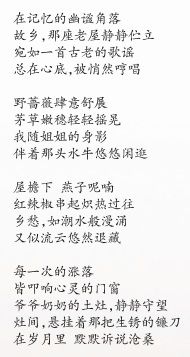 在记忆的幽谧角落
故乡,那座老屋静静伫立
宛如一首古老的歌谣
总在心底,被悄然哼唱

野蔷薇肆意舒展
茅草嫩穗轻轻摇晃
我随姐姐的身影
伴着那头水牛悠悠闲逛

屋檐下 燕子呢喃
红辣椒串起炽热过往
乡愁,如潮水般漫涌
又似流云悠然退藏

每一次的涨落
皆叩响心灵的门窗
爷爷奶奶的土灶,静静守望
灶间,悬挂着那把生锈的镰刀
在岁月里 默默诉说沧桑